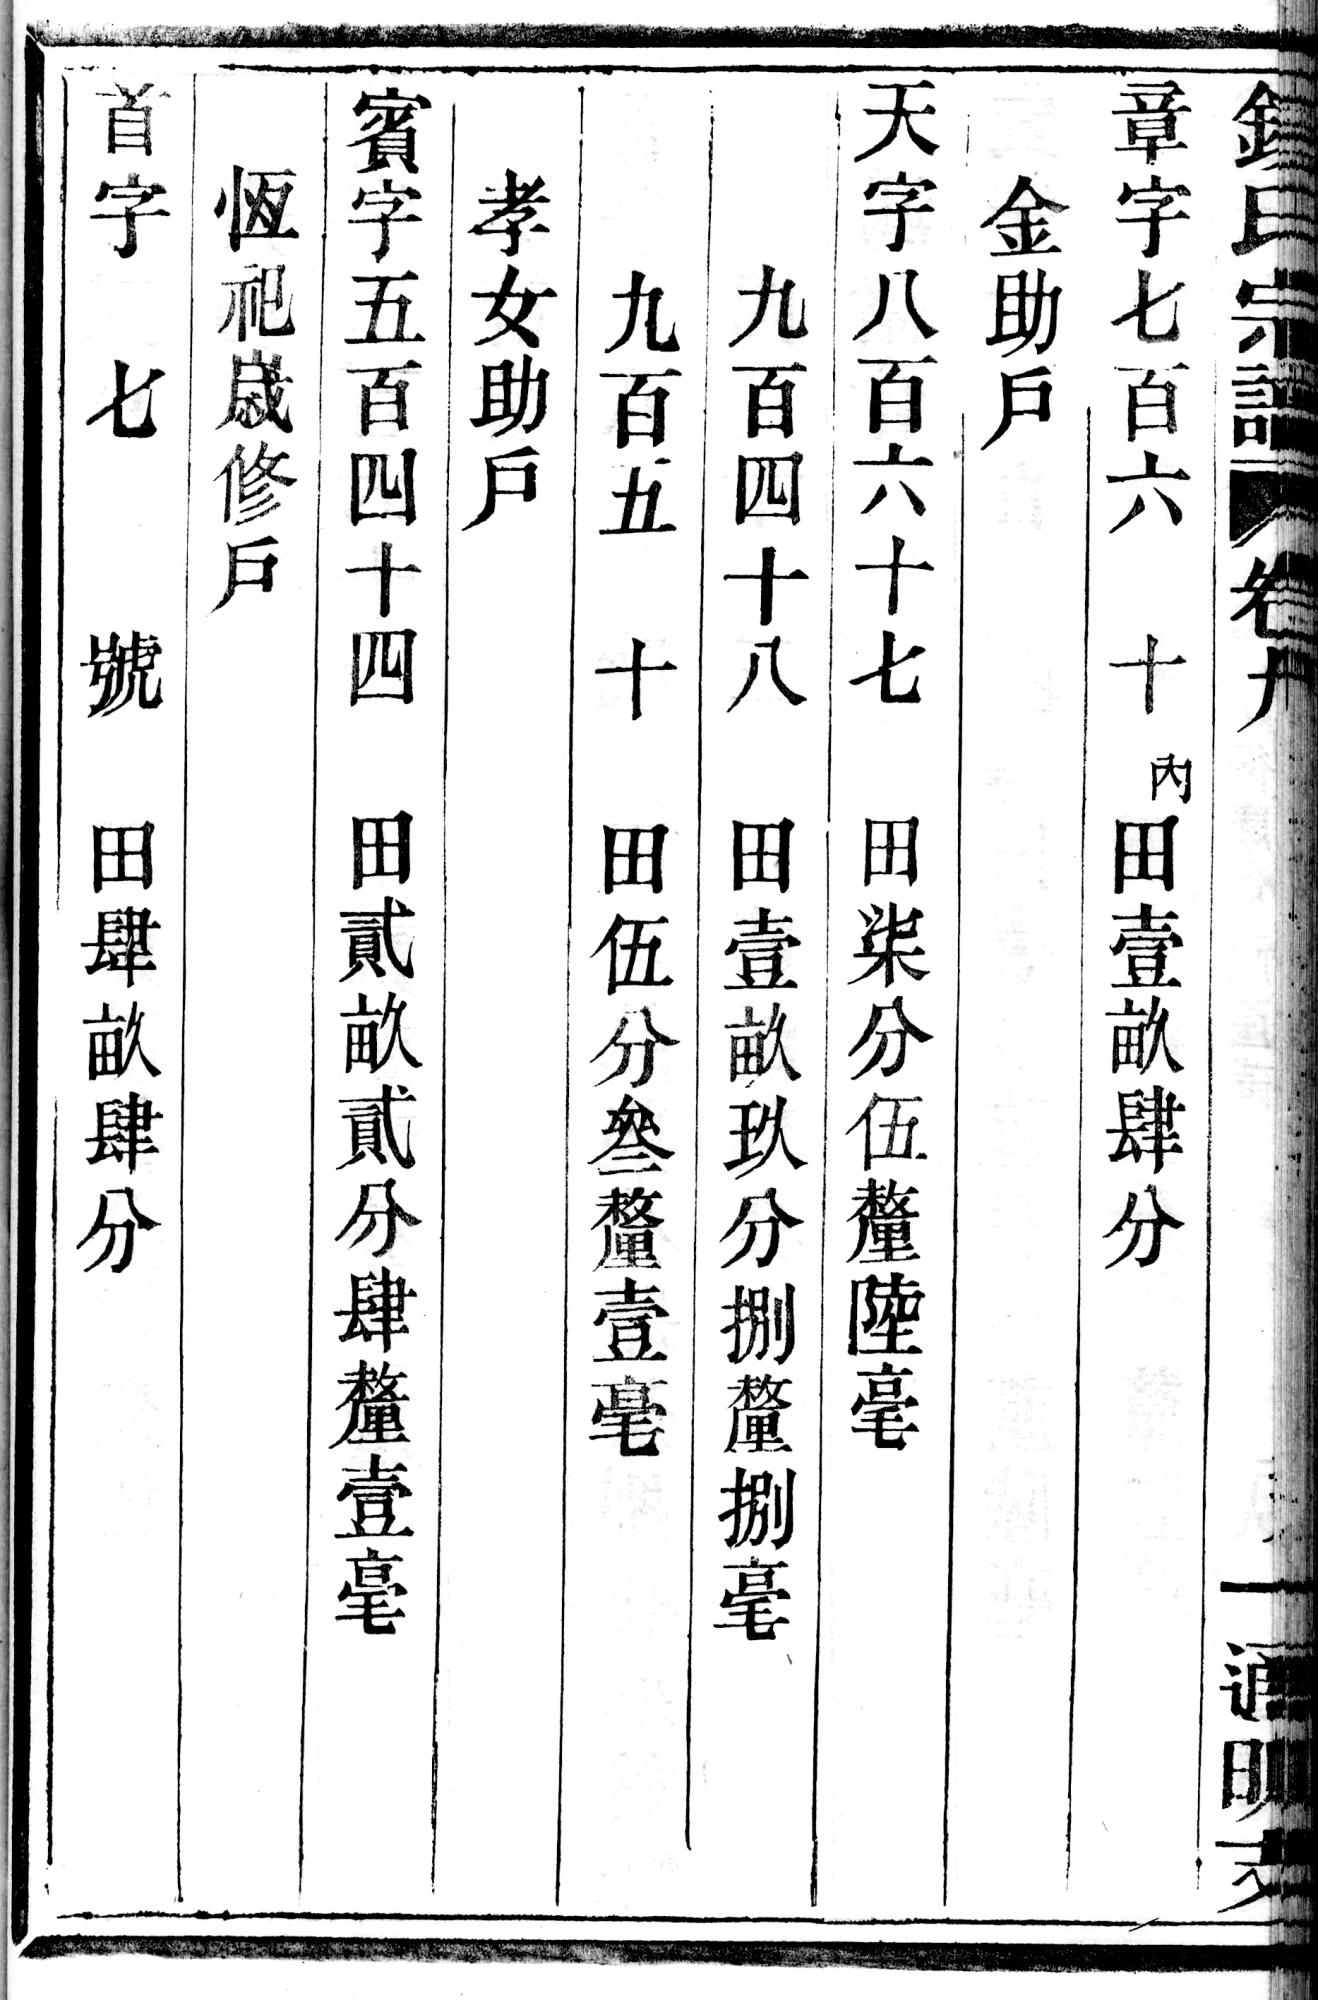 氏宗譜 卷九 通明支
章字七百六十 內田壹畝肆分
金助戶
天字八百六十七 田柒分伍釐陸毫
九百四十八 田壹畝玖分捌釐捌毫
九百五十 田伍分叄釐壹毫
孝女助戶
賓字五百四十四 田貳畝貳分肆釐壹毫
恆祀歲修戶
首字七號 田肆畝肆分